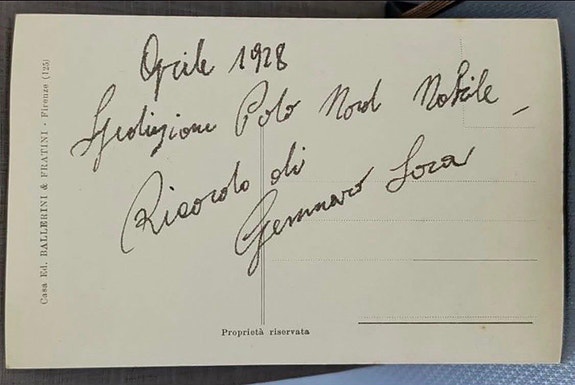 Aprile 1928
Spedizione Polo Nord Nobile
Ricordo di
Gennaro Sora
Casa Ed. BALLERINI & FRATINI - Firenze (125)
Proprietà riservata